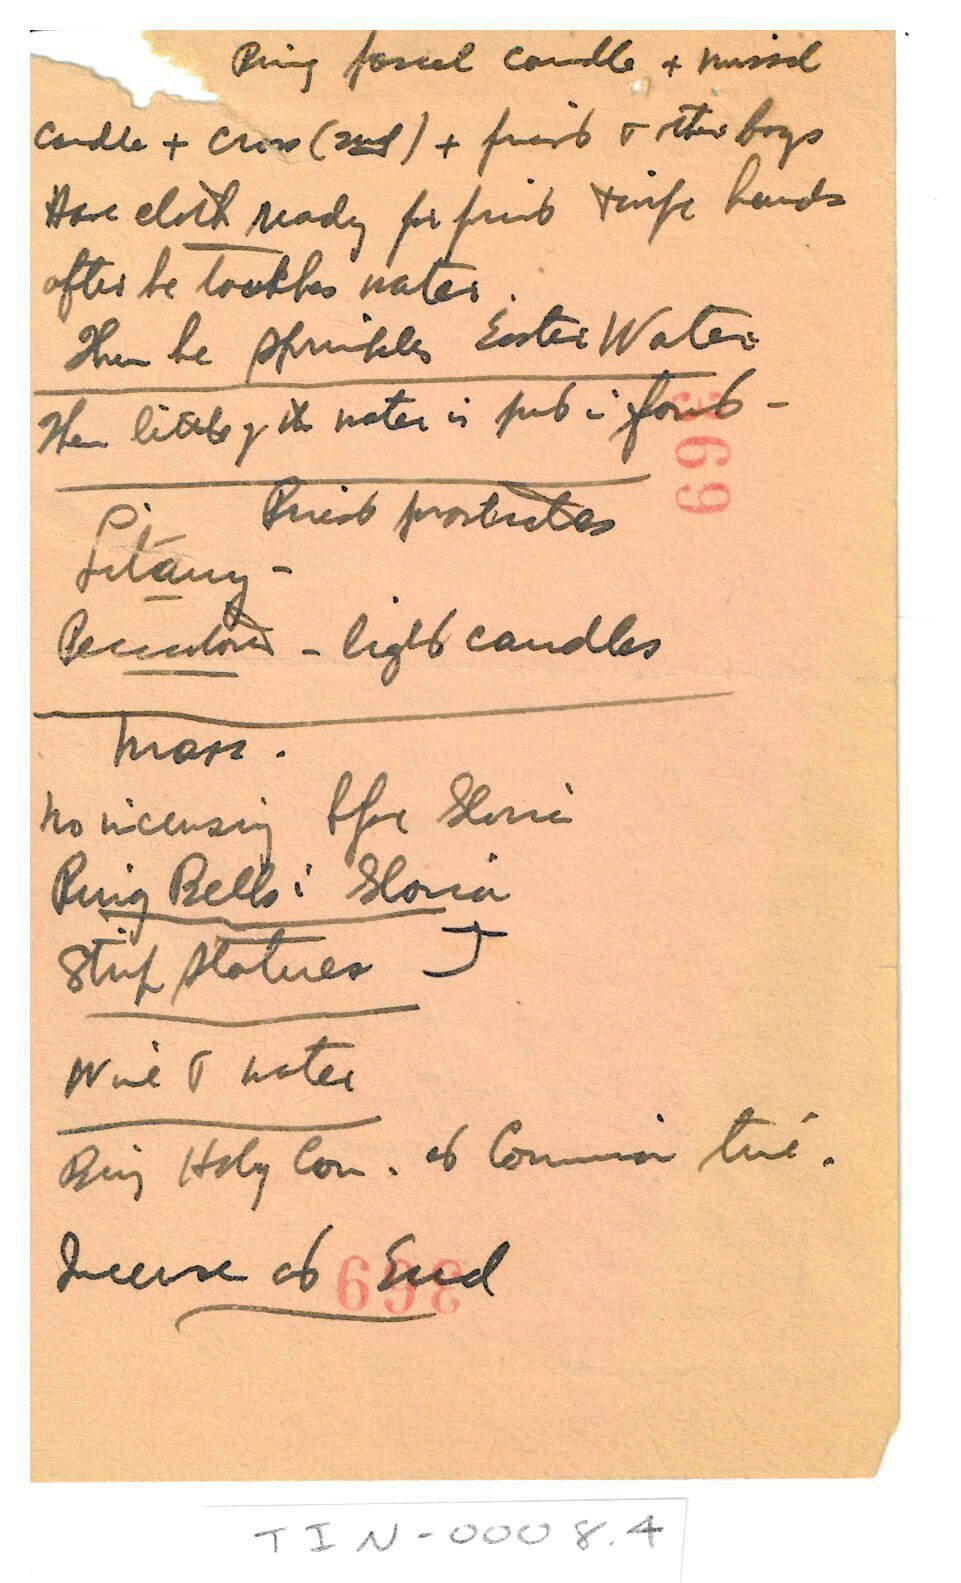 Bring pascal candle + missal
candle + cross (red) + priest & other boys
Have cloth ready for priest to wipe hands
after he touches water.
Then he sprinkles Easter Water
Then little of the water is put in font -
369
Priest prostrates
Litany -
Peccatores - light candles
Mass.
No incensing before Gloria
Ring Bells i Gloria
Strip statues
Wine & water
Ring Holy Com. at Communion time.
Incense at End
369
TIN-0008.4